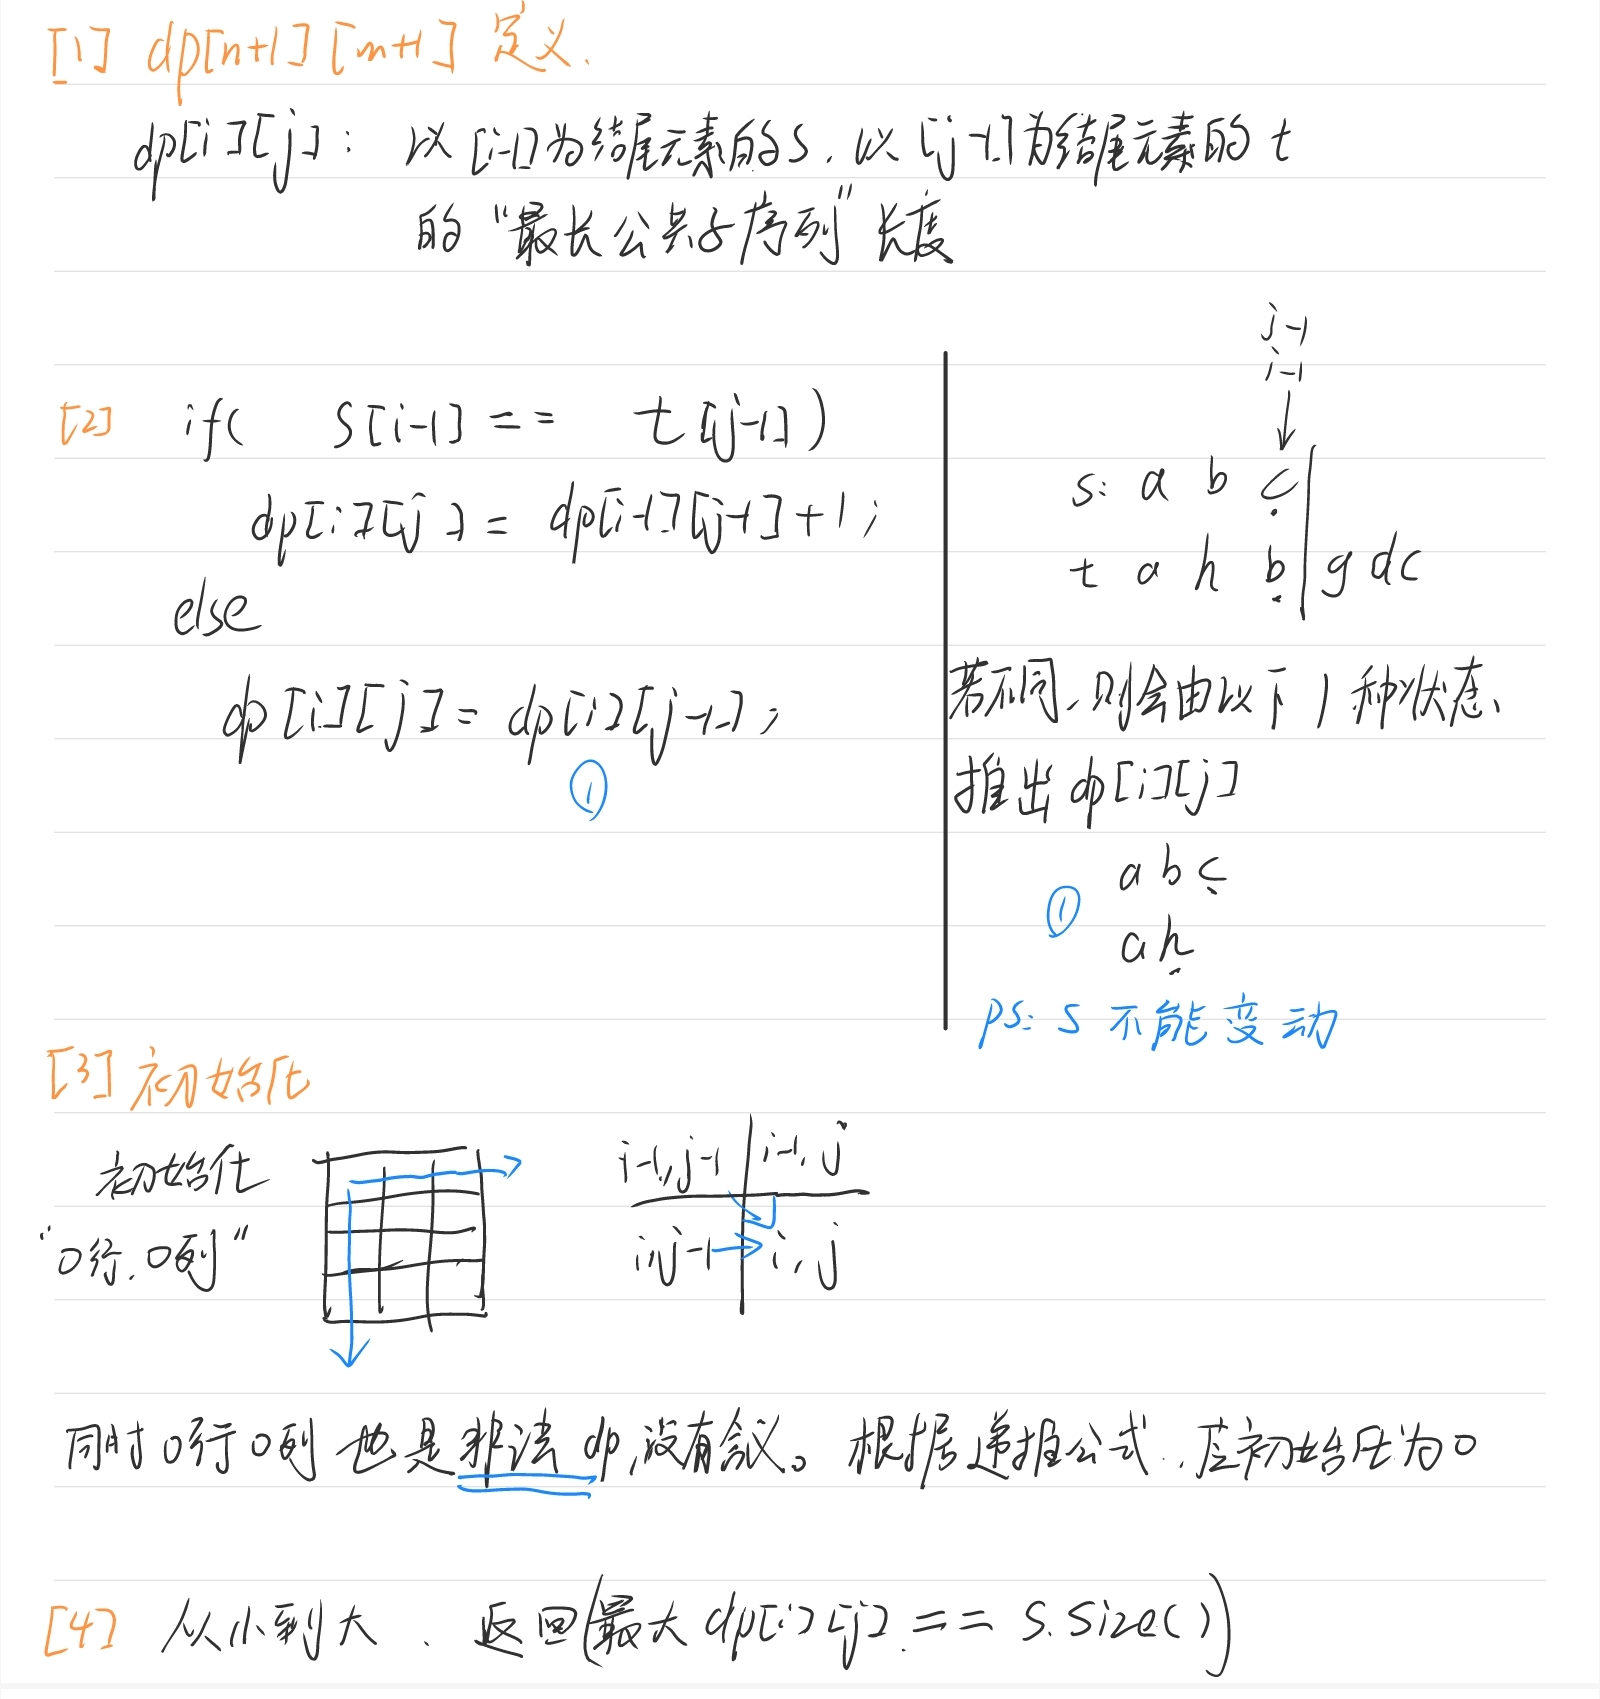 [1] dp[n+1][m+1] 定义.
dp[i][j]: 以[i-1]为结尾元素的s, 以[j-1]为结尾元素的t
的“最长公共子序列”长度
[2] if( s[i-1] == t[j-1])
dp[i][j] = dp[i-1][j-1]+1;
else
dp[i][j] = dp[i][j-1];
①
j-1
i-1
s: a b c
t a h b g d c
若不同,则会由以下1种状态、
推出dp[i][j]
① a b c
a h
ps: s 不能变动
[3] 初始化
初始化
“0行,0列”
i-1,j-1 i-1,j
i,j-1 i,j
同时0行0列也是非法dp,没有含义。根据递推公式,应初始化为0
[4] 从小到大. 返回(最大dp[i][j] == s.size())